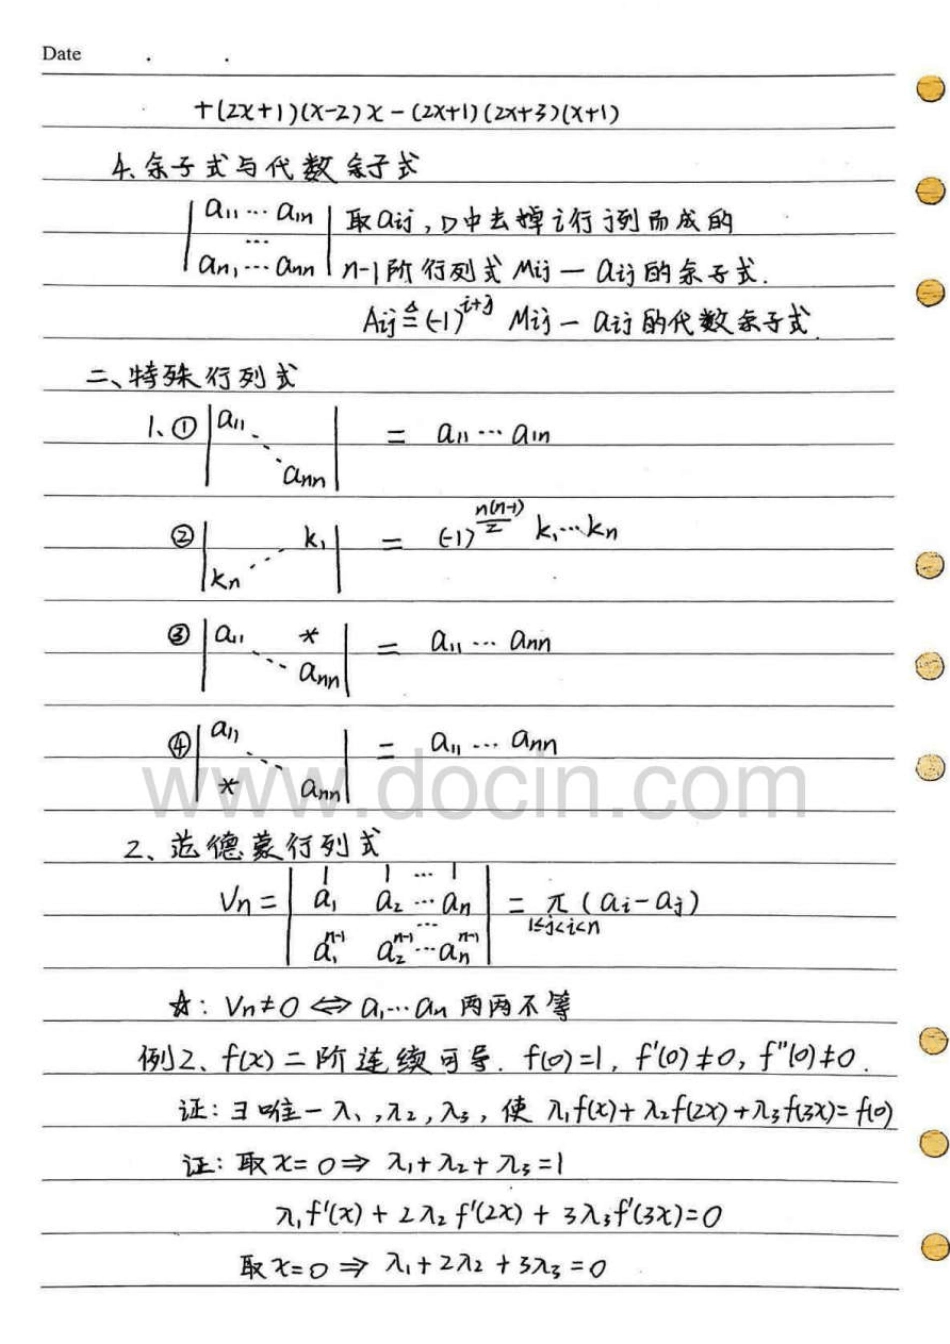 Date . .
+(2x+1)(x-2)x-(2x+1)(2x+3)(x+1)
4.余子式与代数余子式
|a₁₁…a₁n| 取aij,D中去掉i行j列而成的
…
|an₁…ann| n-1阶行列式Mij—aij的余子式.
Aij≜(-1)^(i+j) Mij—aij的代数余子式.
二、特殊行列式
1.①|a₁₁ ⋱ ann| = a₁₁…a₁n
②|k₁ ⋰ kn| = (-1)^(n(n-1)/2) k₁…kn
③|a₁₁ * ⋱ ann| = a₁₁…ann
④|a₁₁ ⋱ * ann| = a₁₁…ann
www.docin.com
2、范德蒙行列式
1 1 … 1
Vn=|a₁ a₂…an| = π(ai-aj)
… 1≤j<i<n
a₁^(n-1) a₂^(n-1)…an^(n-1)
☆: Vn≠0⇔a₁…an两两不等
例2、f(x)二阶连续可导. f(0)=1, f'(0)≠0, f"(0)≠0.
证:∃唯一λ₁,λ₂,λ₃,使λ₁f(x)+λ₂f(2x)+λ₃f(3x)=f(0)
证:取x=0⇒λ₁+λ₂+λ₃=1
λ₁f'(x)+2λ₂f'(2x)+3λ₃f'(3x)=0
取x=0⇒λ₁+2λ₂+3λ₃=0